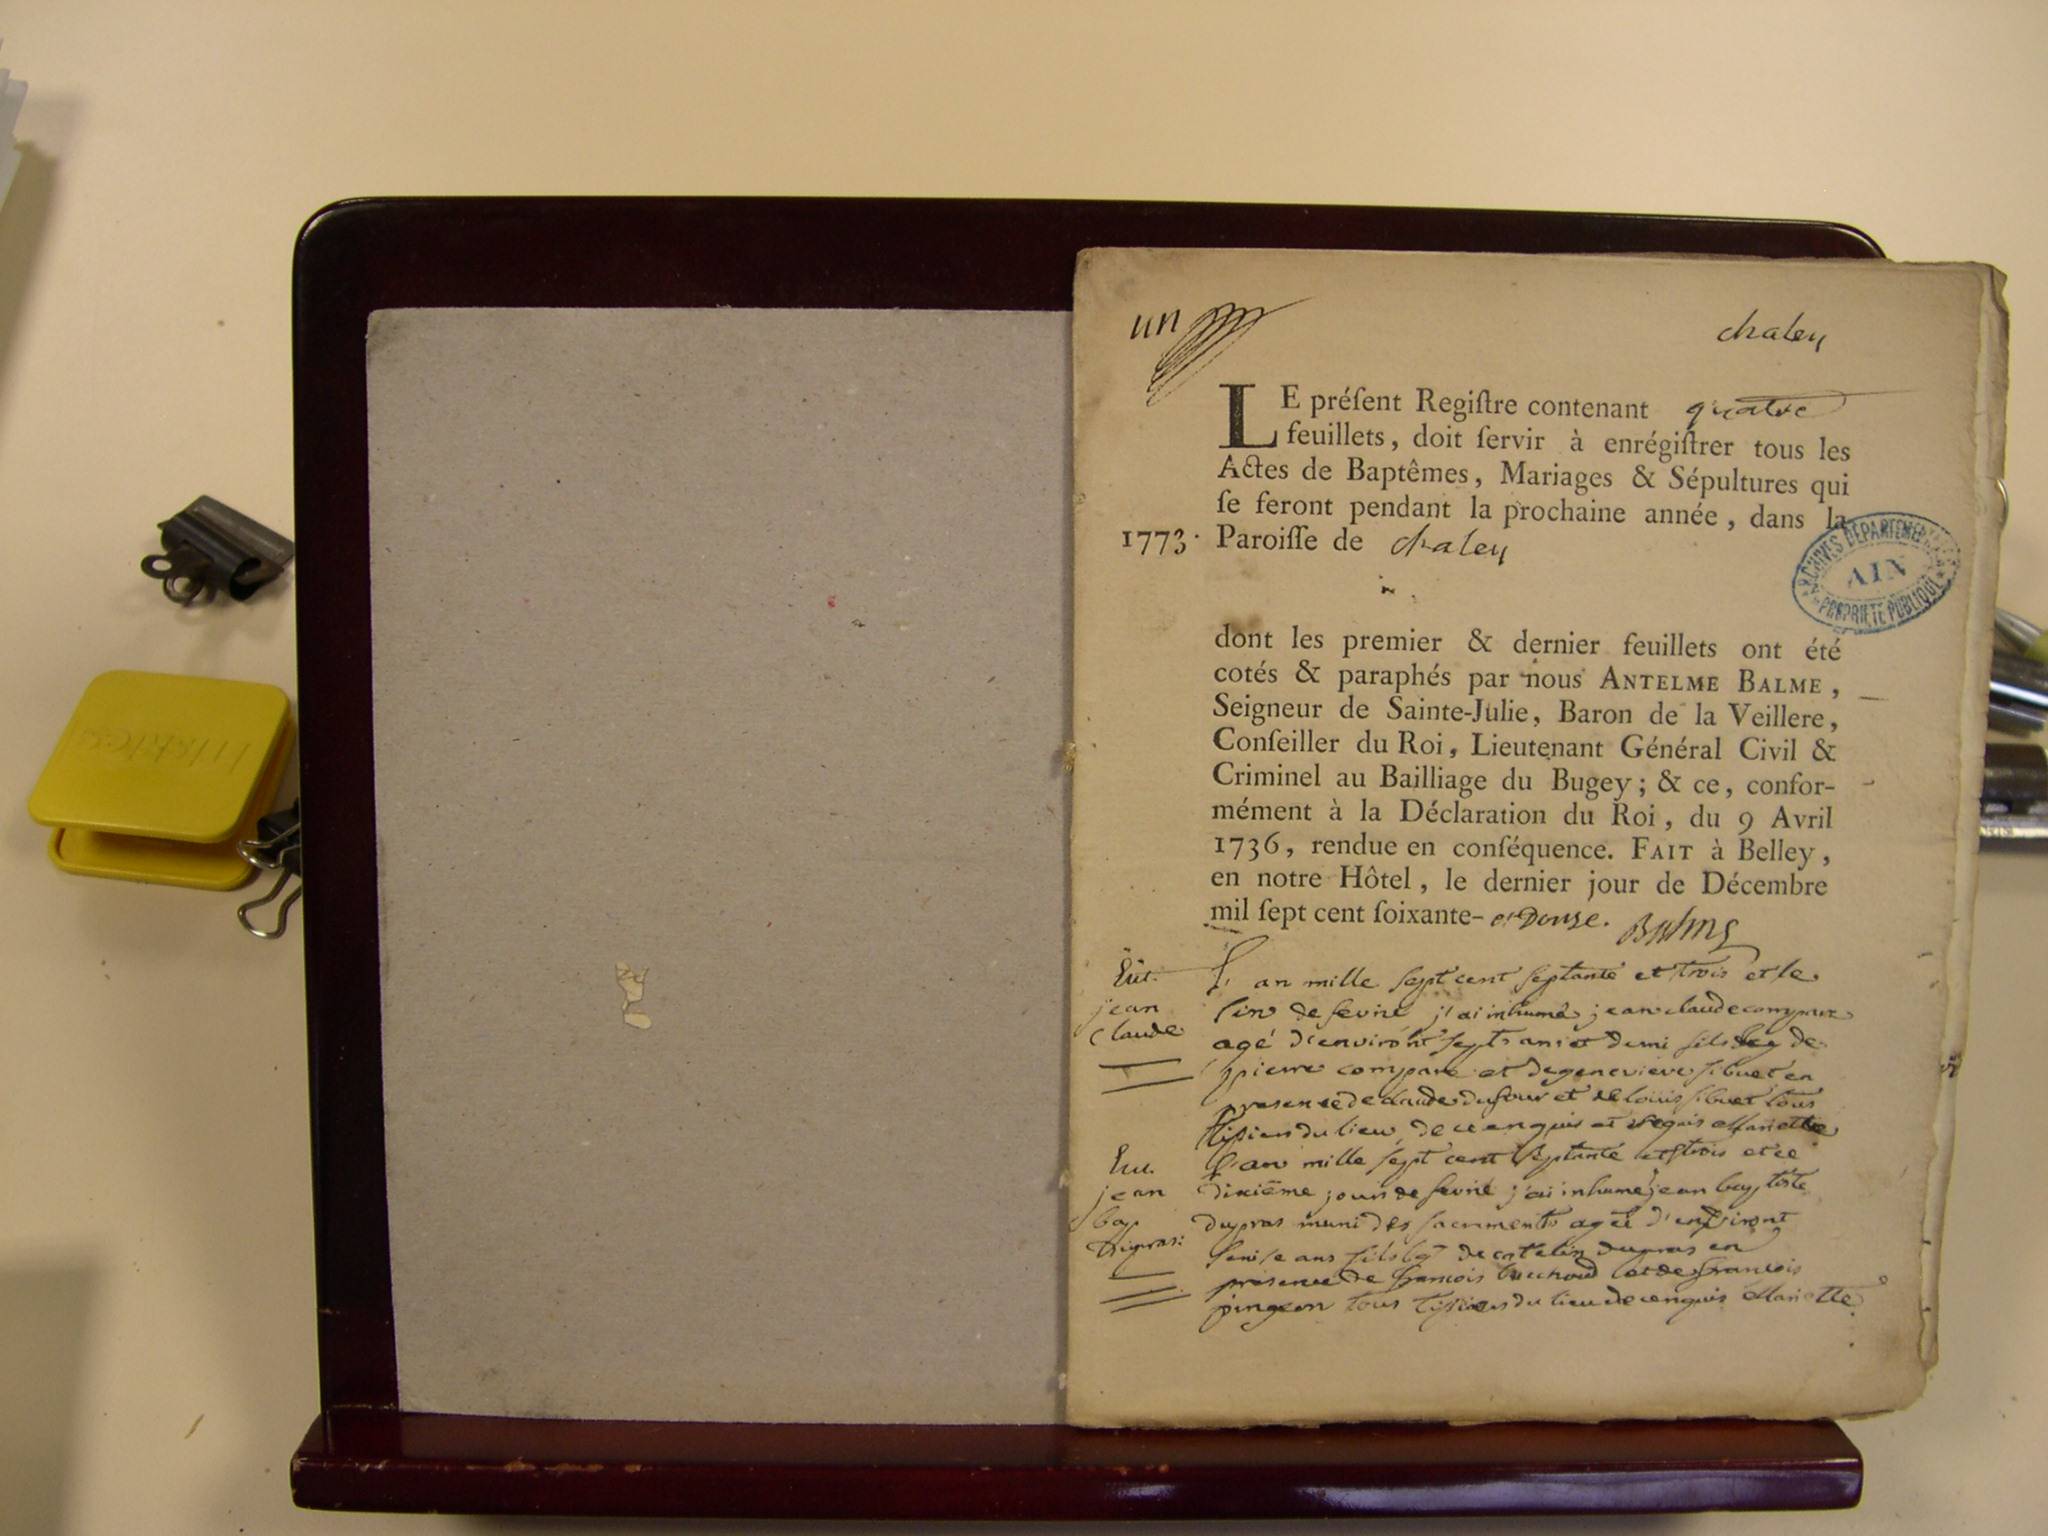 un
chaley
LE préſent Regiſtre contenant quatre
feuillets, doit ſervir à enrégiſtrer tous les
Actes de Baptêmes, Mariages & Sépultures qui
ſe feront pendant la prochaine année, dans la
1773. Paroiſſe de chaley
ARCHIVES DÉPARTEMENTALES
AIN
PROPRIÉTÉ PUBLIQUE
dont les premier & dernier feuillets ont été
cotés & paraphés par nous ANTELME BALME,
Seigneur de Sainte-Julie, Baron de la Veillere,
Conſeiller du Roi, Lieutenant Général Civil &
Criminel au Bailliage du Bugey; & ce, confor-
mément à la Déclaration du Roi, du 9 Avril
1736, rendue en conſéquence. FAIT à Belley,
en notre Hôtel, le dernier jour de Décembre
mil ſept cent ſoixante- et Douse. Balme
jean
claude
L'an mille sept cent septante et trois et le
de fevrié j'ai inhumé jean claude compare
agé d'environt sept ans et demi fils de
pierre compare et de genevieve sibuet en
presence de claude dufour et de louis sibuet tous
du lieu de Mariette
jean
bap
Dupras:
L'an mille sept cent septante et trois et le
dixième jour de fevrié j'ai inhumé jean baptiste
dupras muni des sacrements agé d'environt
ans fils de dupras en
presence de francois et de francois
pingeon tous du lieu de Mariette